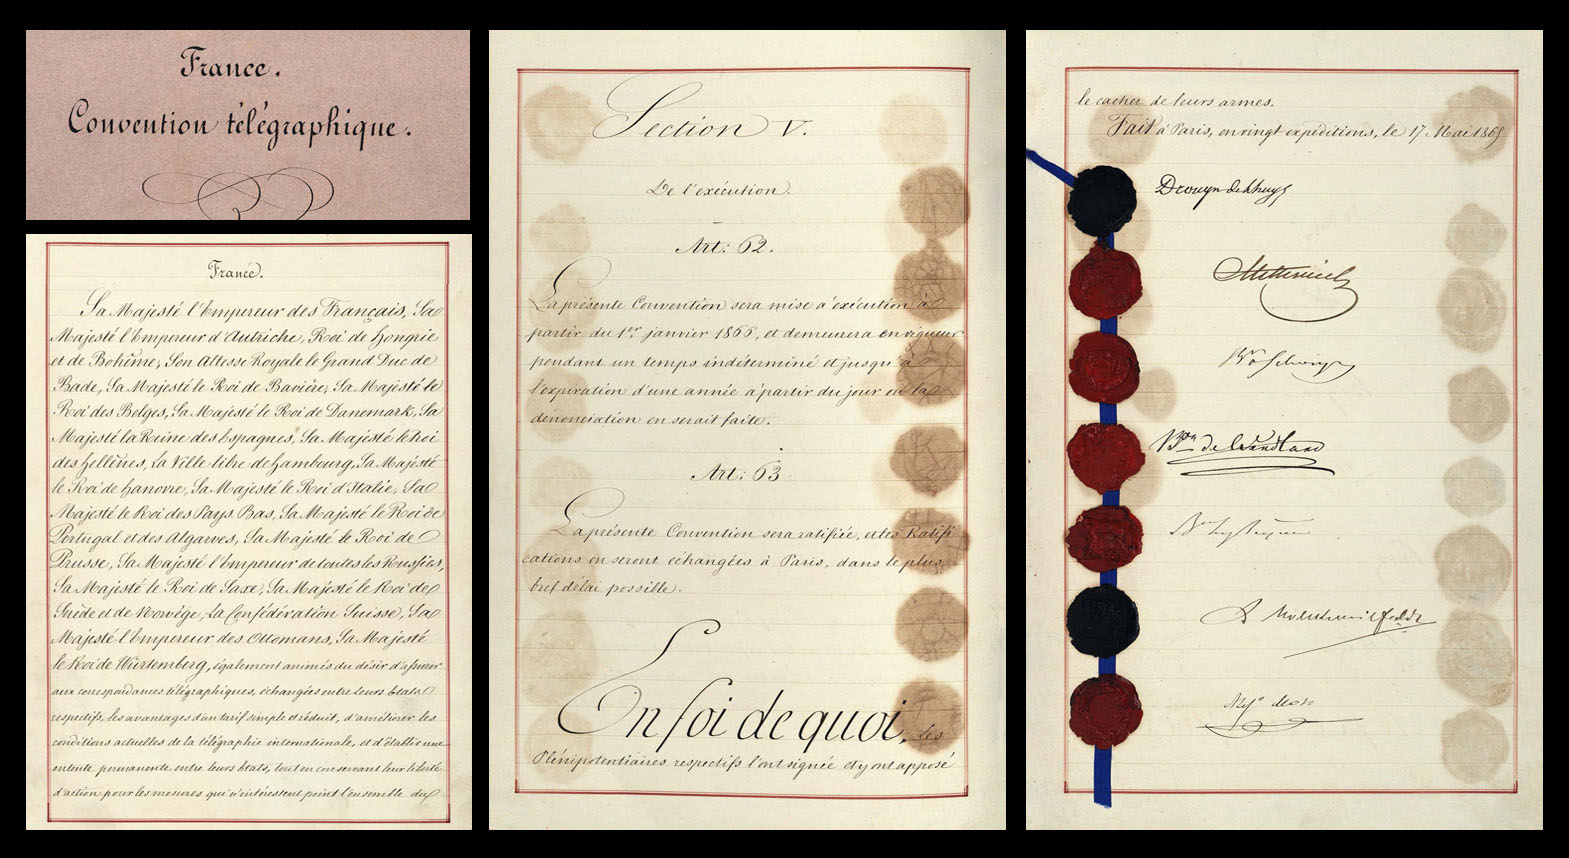 France.
Convention télégraphique.
France.
Sa Majesté l'Empereur des Français, Sa
Majesté l'Empereur d'Autriche, Roi de Hongrie
et de Bohême, Son Altesse Royale le Grand Duc de
Bade, Sa Majesté le Roi de Bavière, Sa Majesté le
Roi des Belges, Sa Majesté le Roi de Danemark, Sa
Majesté la Reine des Espagnes, Sa Majesté le Roi
des Hellènes, La Ville libre de Hambourg, Sa Majesté
le Roi de Hanovre, Sa Majesté le Roi d'Italie, Sa
Majesté le Roi des Pays Bas, Sa Majesté le Roi de
Portugal et des Algarves, Sa Majesté le Roi de
Prusse, Sa Majesté l'Empereur de toutes les Russies,
Sa Majesté le Roi de Saxe, Sa Majesté le Roi de
Suède et de Norwège, La Confédération Suisse, Sa
Majesté l'Empereur des Ottomans, Sa Majesté
le Roi de Würtemberg, également animés du désir d'assurer
aux correspondances télégraphiques, échangées entre leurs États
respectifs, les avantages d'un tarif simple et réduit, d'améliorer les
conditions actuelles de la télégraphie internationale, et d'établir une
entente permanente entre leurs États, tout en conservant leur liberté
d'action pour les mesures qui n'intéressent point l'ensemble du
Section V.
De l'exécution.
Art: 62.
La présente Convention sera mise à exécution à
partir du 1er janvier 1866, et demeurera en vigueur
pendant un temps indéterminé et jusqu'à
l'expiration d'une année à partir du jour où la
dénonciation en serait faite.
Art: 63
La présente Convention sera ratifiée, et les Ratifi
cations en seront échangées à Paris, dans le plus
bref délai possible.
En foi de quoi, les
Plénipotentiaires respectifs l'ont signée et y ont apposé
le cachet de leurs armes.
Fait à Paris, en vingt expéditions, le 17 Mai 1865
Drouyn de Lhuys
Metternich
Bon de Wendland